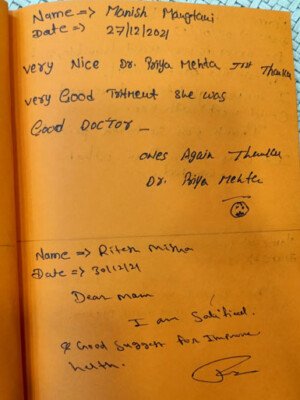 Name => Manish Mangtani
Date => 27/12/2021
very Nice Dr. Priya Mehta Thanku
very Good Tretment She was
Good DOCTOR _
ones Again Thanku
Dr. Priya Mehta
Name => Ritesh Mishra
Date => 30/12/21
Dear mam
I am Satisfied.
& Good Suggest for Improve
helth.